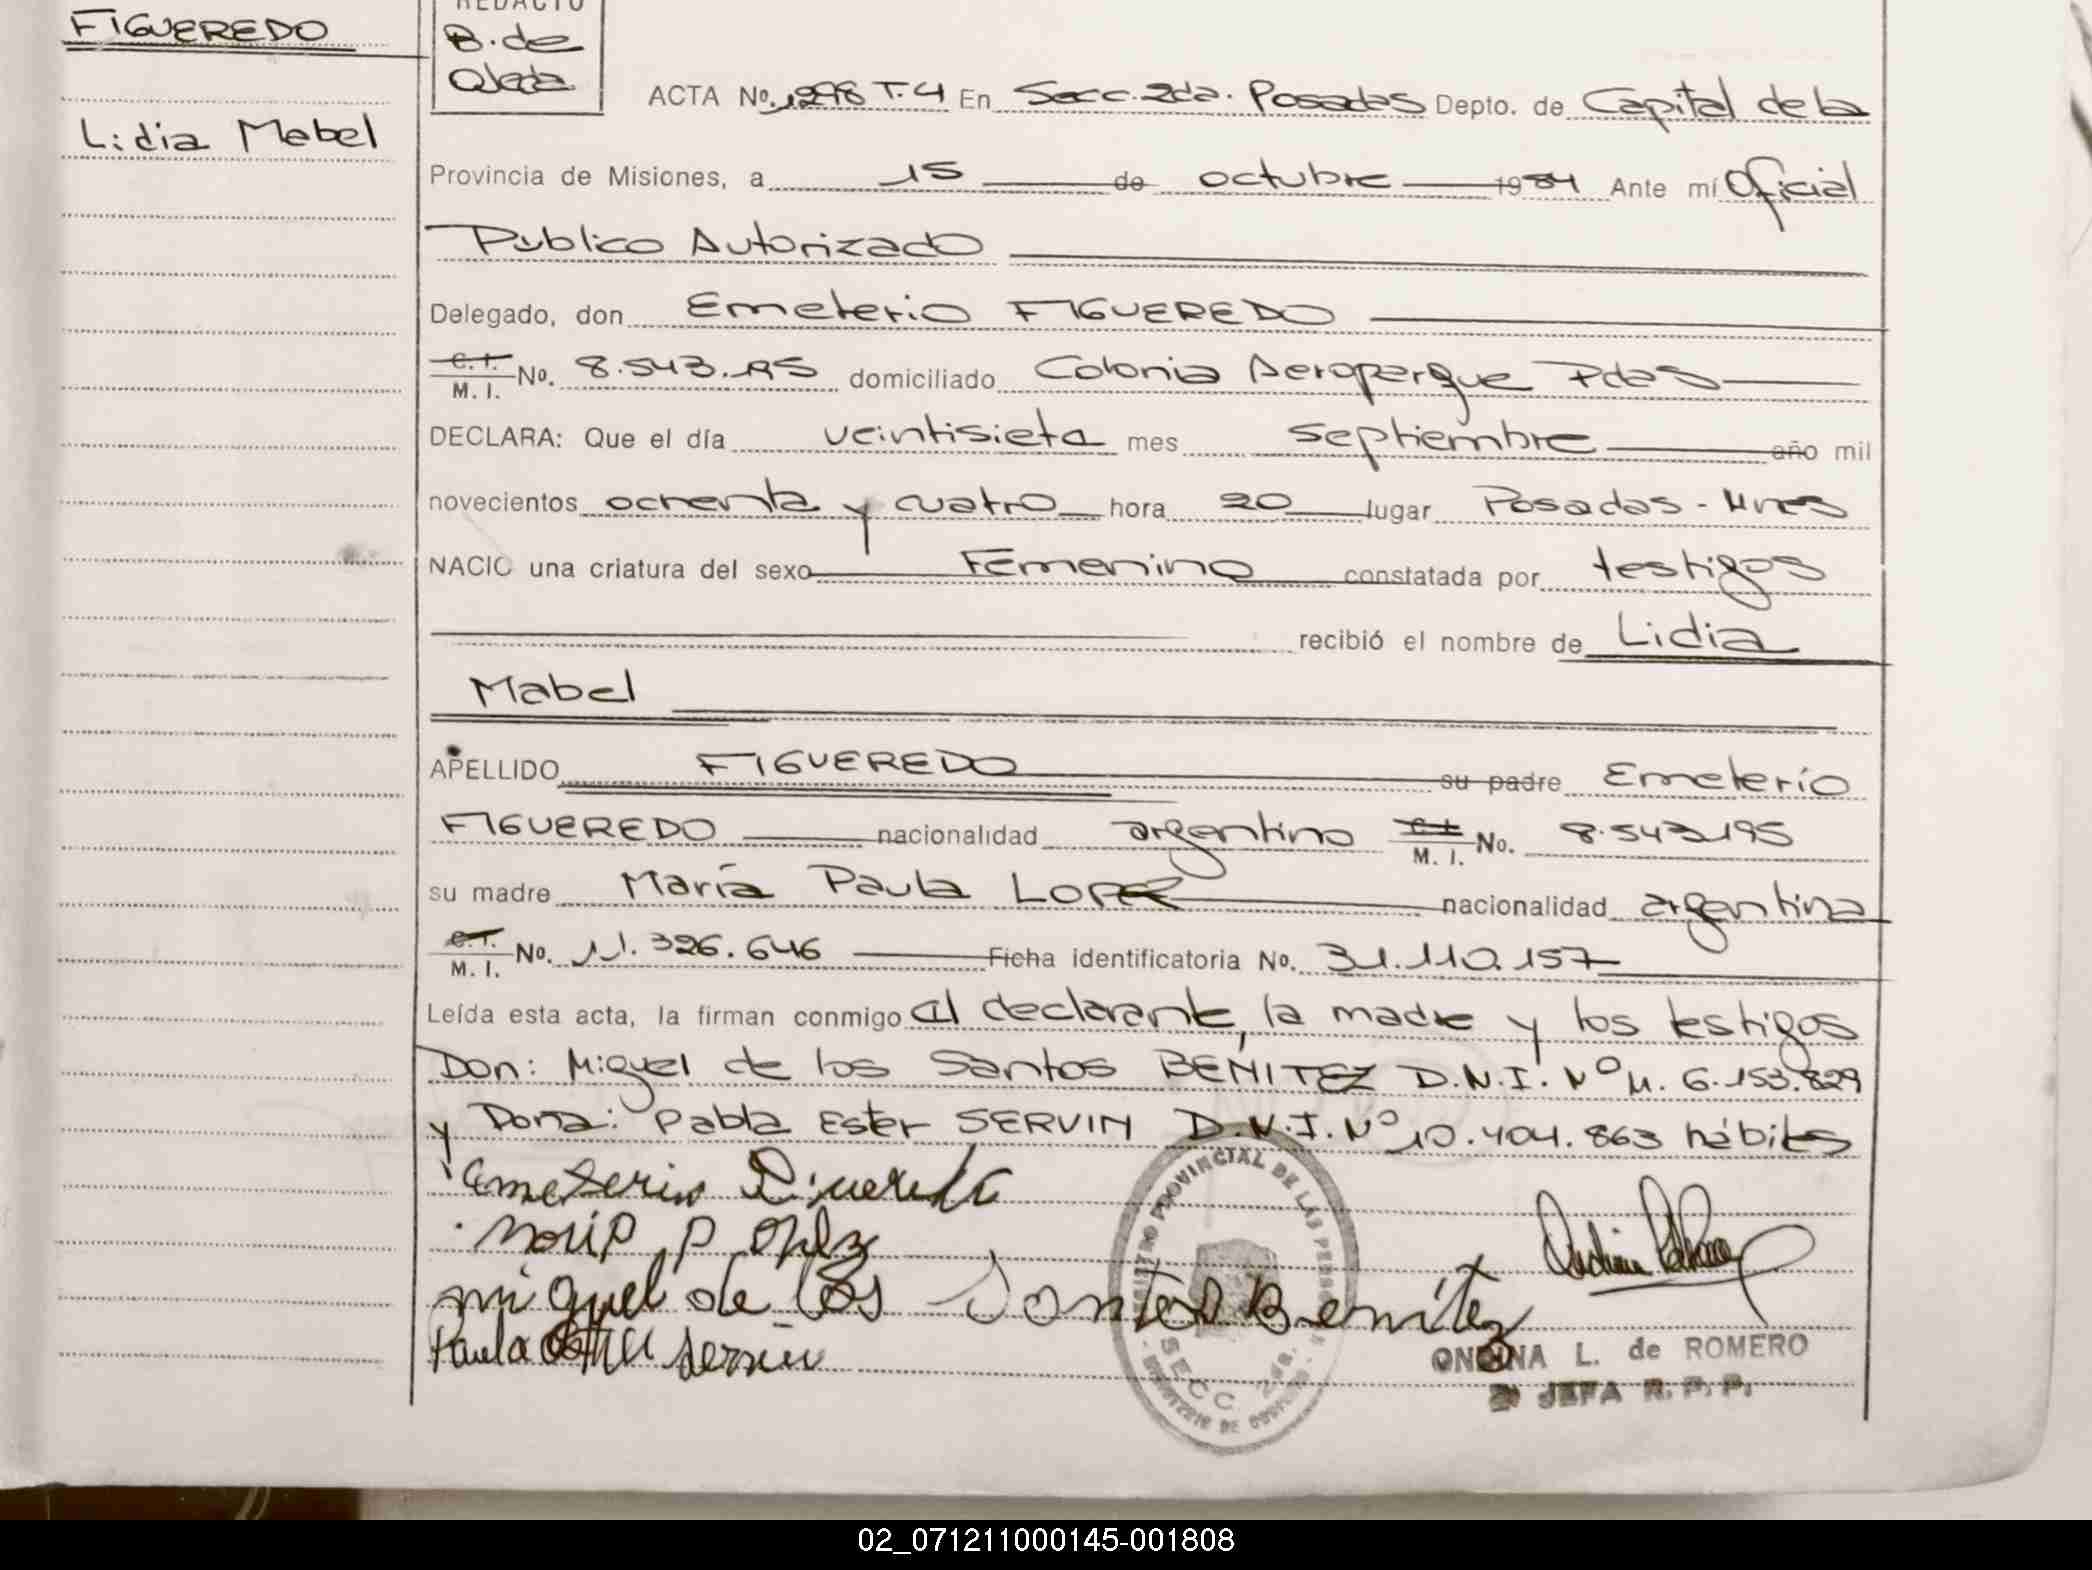 FIGUEREDO
Lidia Mabel
REDACTO
B. de
Ojeda
ACTA No. 1298 T. 4 En Secc. 2da. Posadas Depto. de Capital de la
Provincia de Misiones, a 15 de octubre 1984 Ante mí Oficial
Publico Autorizado
Delegado, don Emeterio FIGUEREDO
C. I. M. I. No. 8.543.195 domiciliado Colonia Aeroparque Pdas
DECLARA: Que el día veintisiete mes septiembre año mil
novecientos ochenta y cuatro hora 20 lugar Posadas - Mnes
NACIO una criatura del sexo Femenino constatada por testigos
recibió el nombre de Lidia
Mabel
APELLIDO FIGUEREDO su padre Emeterio
FIGUEREDO nacionalidad argentino C. I. M. I. No. 8.543.195
su madre María Paula LOPEZ nacionalidad argentina
C. I. M. I. No. 11.326.646 Ficha identificatoria No. 31.110.157
Leída esta acta, la firman conmigo el declarante, la madre y los testigos
Don: Miguel de los Santos BENITEZ D.N.I. Nº M. 6.153.829
y Doña: Pabla Ester SERVIN D.N.I. Nº 10.404.863 hábiles
Emeterio Figueredo
Maria P Opez
miguel de los Santos Benítez
Paula Servin
REGISTRO PROVINCIAL DE LAS PERSONAS
SECC. 2da.
MINISTERIO DE GOBIERNO
ONDINA L. de ROMERO
2ª JEFA R. P. P.
02_071211000145-001808